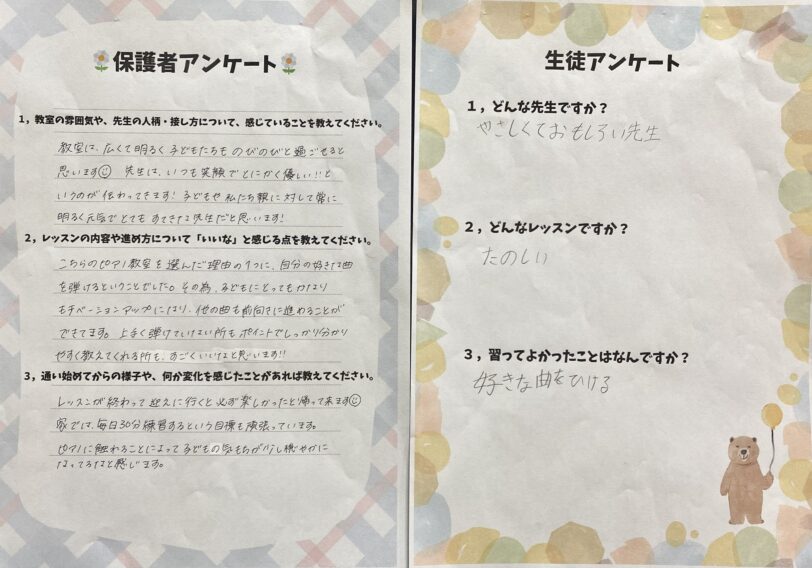 保護者アンケート
1，教室の雰囲気や、先生の人柄・接し方について、感じていることを教えてください。
教室は、広くて明るく子どもたちものびのびと過ごせると
思います☺ 先生は、いつも笑顔でとにかく優しい!!と
いうのが伝わってきます！子どもや私たち親に対して常に
明るく元気でとてもすてきな先生だと思います！
2，レッスンの内容や進め方について「いいな」と感じる点を教えてください。
こちらのピアノ教室を選んだ理由の1つに、自分の好きな曲
を弾けるということでした。その為、子どもにとってもかなり
モチベーションアップになり、他の曲も前向きに進めることが
できてます。上手く弾けていない所もポイントでしっかり分かり
やすく教えてくれる所も、すごくいいなと思います!!
3，通い始めてからの様子や、何か変化を感じたことがあれば教えてください。
レッスンが終わって迎えに行くと必ず楽しかったと帰って来ます☺
家では、毎日30分練習するという目標も頑張っています。
ピアノに触れることによって子どもの気もちが少し穏やかに
なってるなと感じます。
生徒アンケート
1，どんな先生ですか？
やさしくておもしろい先生
2，どんなレッスンですか？
たのしい
3，習ってよかったことはなんですか？
好きな曲をひける